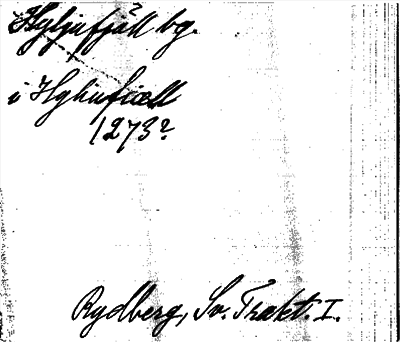 Hyljufjäll bg.
i Hyliufiæll
1273?
Rydberg, Sv. Trakt. I.